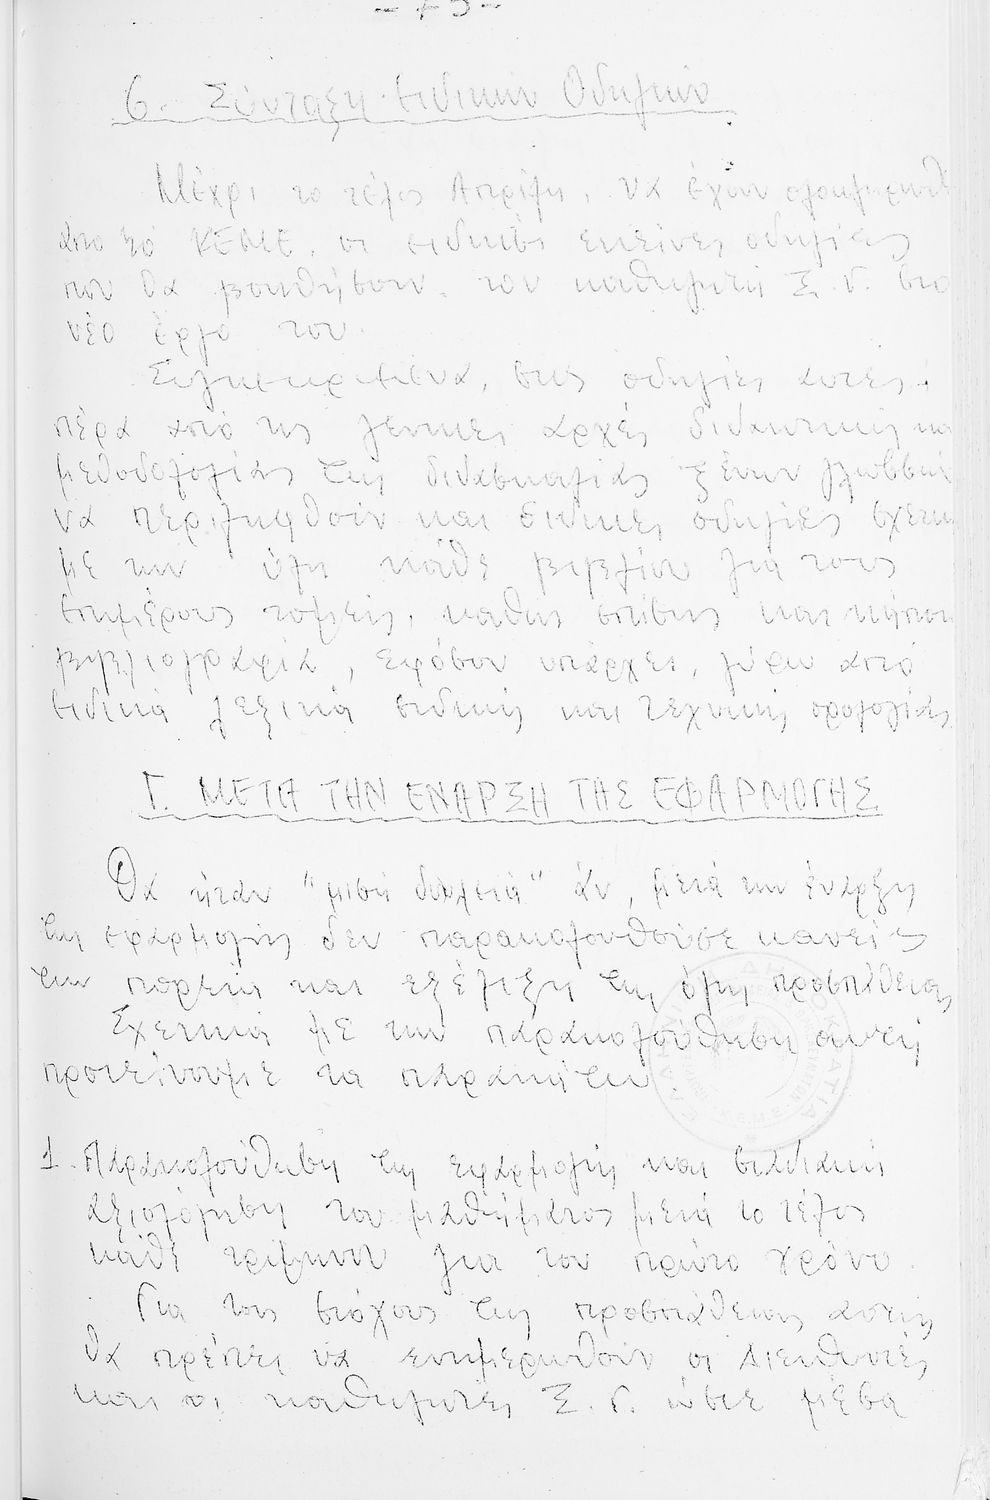 6. Σύνταξη ειδικών Οδηγιών
Μέχρι το τέλος Απρίλη, να έχουν ολοκληρωθεί
από το ΚΕΜΕ, οι ειδικές εκείνες οδηγίες
που θα βοηθήσουν τον καθηγητή Ξ.Γ. στο
νέο έργο του.
Συγκεκριμένα, στις οδηγίες αυτές,
πέρα από τις γενικές αρχές διδακτικής και
μεθοδολογίας της διδασκαλίας ξένων γλωσσών
να περιληφθούν και ειδικές οδηγίες σχετικ
με την ύλη κάθε βιβλίου για τους
επιμέρους τομείς, καθώς επίσης και κάποια
βιβλιογραφία, εφόσον υπάρχει, γύρω από
ειδικά λεξικά ειδικής και τεχνικής ορολογίας
Γ. ΜΕΤΑ ΤΗΝ ΕΝΑΡΞΗ ΤΗΣ ΕΦΑΡΜΟΓΗΣ
Θα ήταν "μισή δουλειά" άν, μετά την έναρξη
της εφαρμογής δεν παρακολουθούσε κανείς
την πορεία και εξέλιξη της όλης προσπάθειας
Σχετικά με την παρακολούθηση αυτή
προτείνουμε τα παρακάτω
1. Παρακολούθηση της εφαρμογής και σταδιακή
αξιολόγηση του μαθήματος μετά το τέλος
κάθε τριμήνου για τον πρώτο χρόνο.
Για τους στόχους της προσπάθειας αυτής
θα πρέπει να ενημερωθούν οι Διευθυντές
και οι καθηγητές Ξ.Γ. ώστε μέσα
ΕΛΛΗΝΙΚΗ ΔΗΜΟΚΡΑΤΙΑ